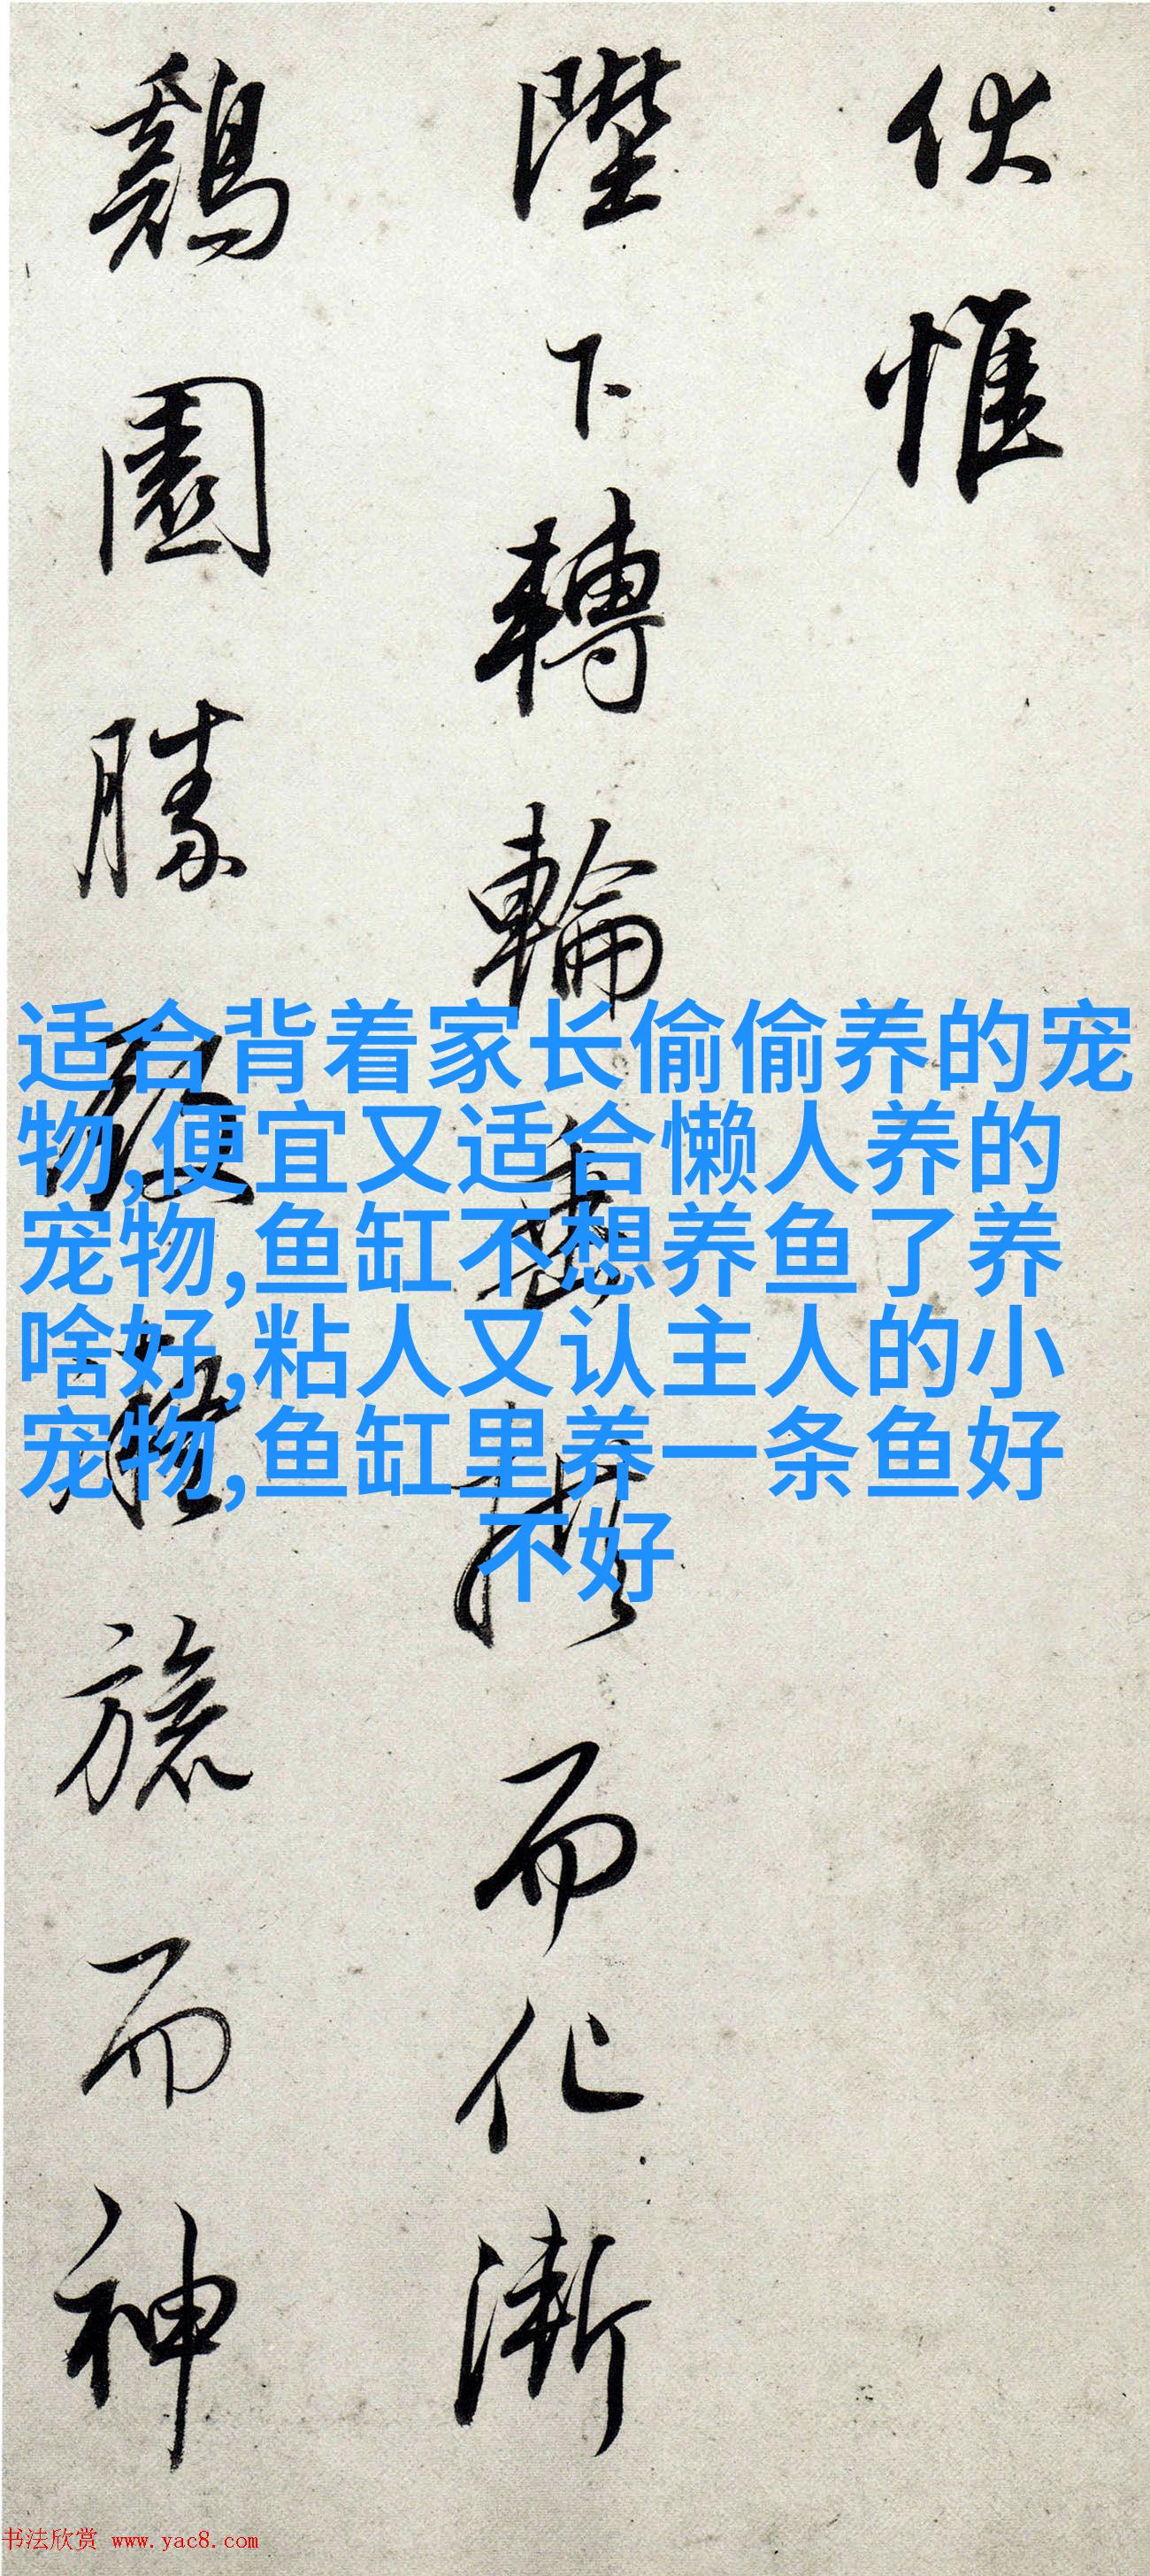 伏惟
陛下轉輪垂拱而化漸
鷄園勝殿離旒而神
适合背着家长偷偷养的宠
物,便宜又适合懒人养的
宠物,鱼缸不想养鱼了养
啥好,粘人又认主人的小
宠物,鱼缸里养一条鱼好
不好
书法欣赏 www.yac8.com